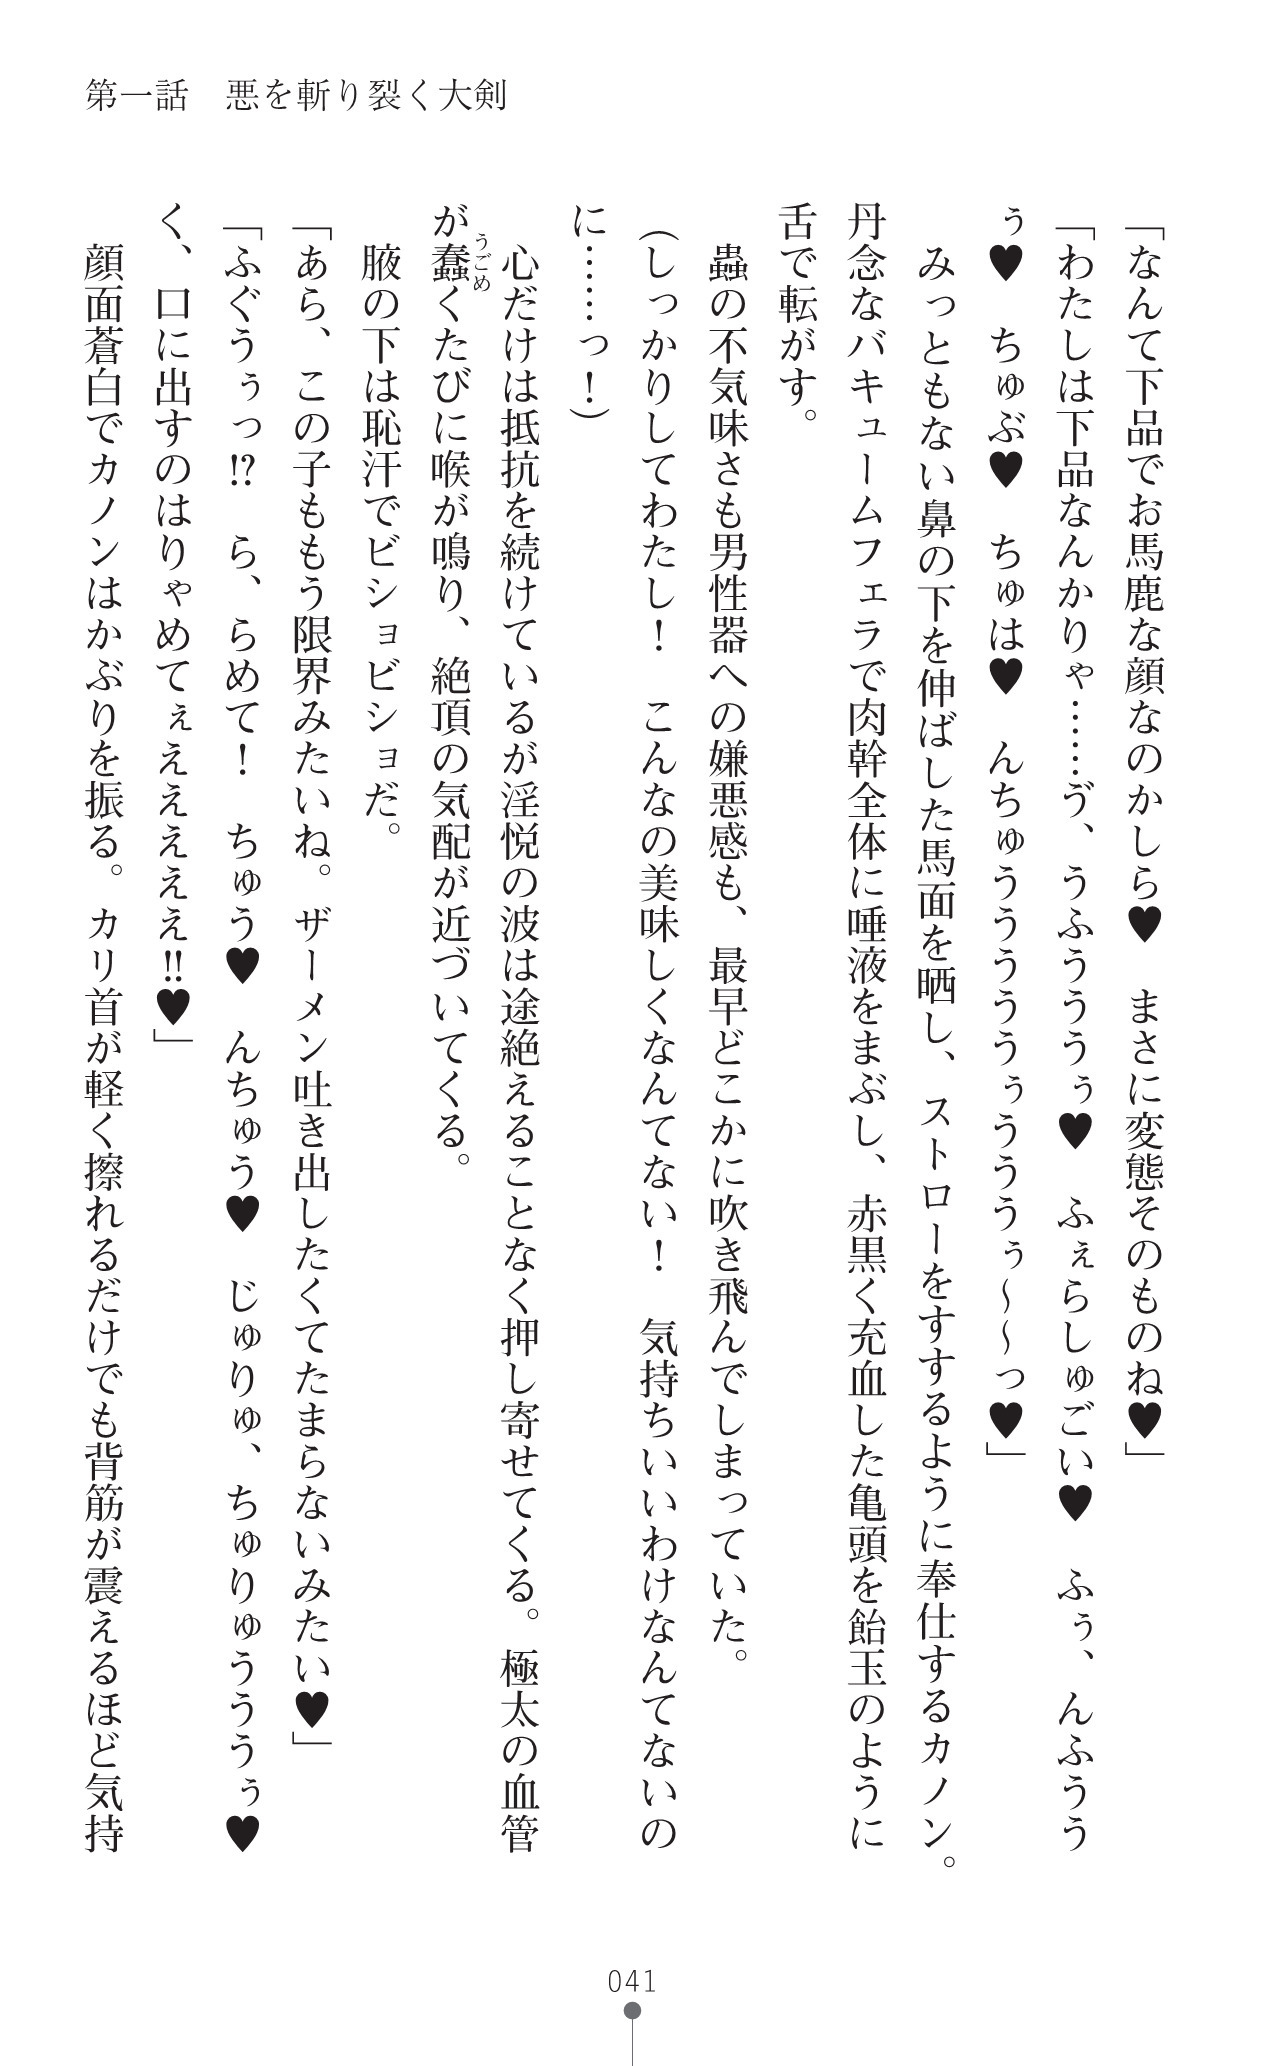 第一話　悪を斬り裂く大剣
「なんて下品でお馬鹿な顔なのかしら♥　まさに変態そのものね♥」
「わたしは下品なんかりゃ……ゔ、うふうううぅ♥　ふぇらしゅごい♥　ふぅ、んふうう
ぅ♥　ちゅぶ♥　ちゅは♥　んちゅうううううぅうううぅ～～っ♥」
　みっともない鼻の下を伸ばした馬面を晒し、ストローをすするように奉仕するカノン。
丹念なバキュームフェラで肉幹全体に唾液をまぶし、赤黒く充血した亀頭を飴玉のように
舌で転がす。
　蟲の不気味さも男性器への嫌悪感も、最早どこかに吹き飛んでしまっていた。
（しっかりしてわたし！　こんなの美味しくなんてない！　気持ちいいわけなんてないの
に……っ！）
　心だけは抵抗を続けているが淫悦の波は途絶えることなく押し寄せてくる。極太の血管
が蠢くたびに喉が鳴り、絶頂の気配が近づいてくる。
うごめ
　腋の下は恥汗でビショビショだ。
「あら、この子ももう限界みたいね。ザーメン吐き出したくてたまらないみたい♥」
「ふぐうぅっ!?　ら、らめて！　ちゅう♥　んちゅう♥　じゅりゅ、ちゅりゅうううぅ♥
く、口に出すのはりゃめてぇえええええ!!♥」
　顔面蒼白でカノンはかぶりを振る。カリ首が軽く擦れるだけでも背筋が震えるほど気持
041